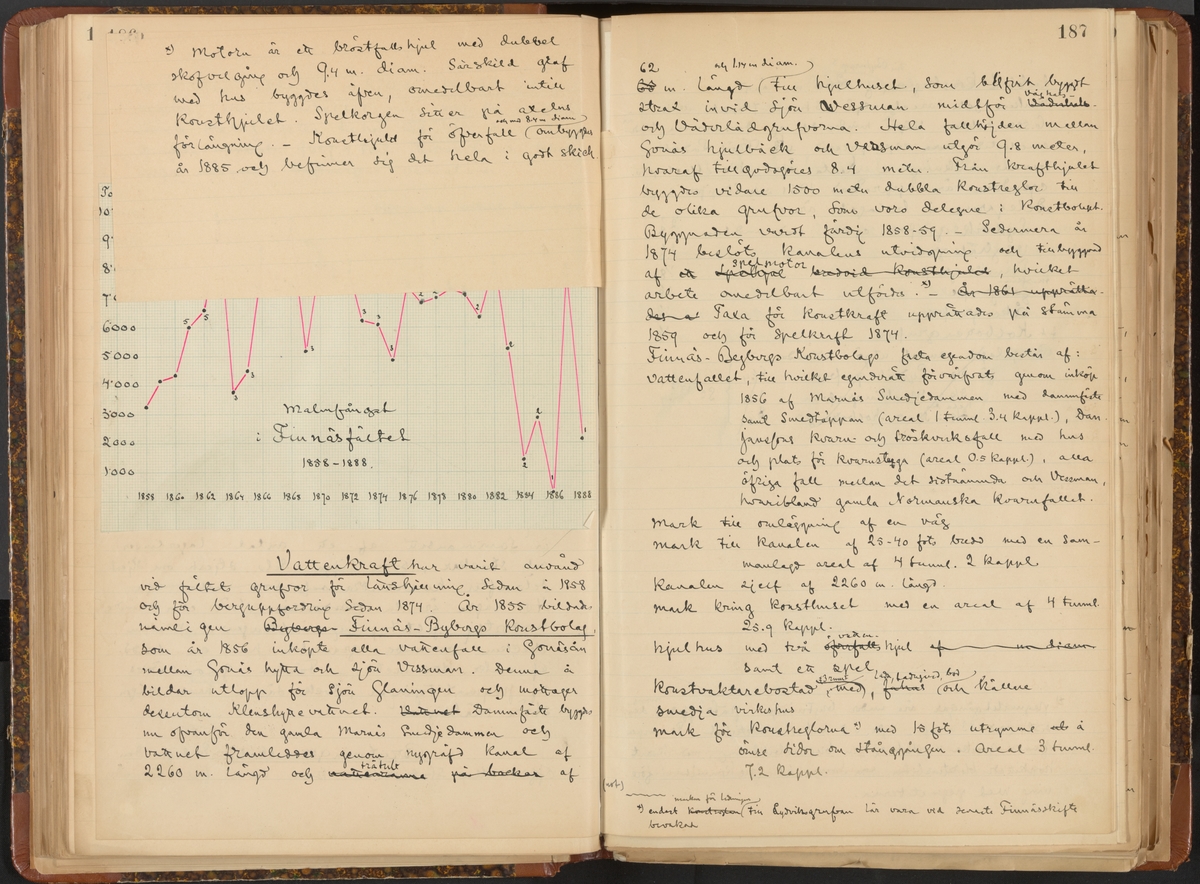 *) Motorn är ett bröstfallshjul med dubbel
skofvelgång och 9.4 m. diam. Särskild
med hus byggdes äfven, omedelbart intill
konsthjulet. Spelkorgen sitter på axelns
förlängning. – Konsthjulet för öfverfall (ombyggdes
år 1885 och befinner sig det hela i godt skick.
6'000
5'000
4'000
3'000
2'000
1'000
Malmfånget
i Finnäsfältet
1858–1888.
1858 1860 1862 1864 1866 1868 1870 1872 1874 1876 1878 1880 1882 1884 1886 1888
Vattenkraft har varit använd
vid fältet grufvor för länshållning sedan år 1858
och för berguppfordring sedan 1874. År 1855 bildades
nämligen Finnäs-Bybergs Konstbolag,
som år 1856 inköpte alla vattenfall i Gonäsån
mellan Gonäs hytta och sjön Vessman. Denna å
bildar utlopp för sjön Glaningen och mottager
dessutom Klenshyttevattnet. Dammfäste byggdes
nu ofvanför den gamla Marnäs Smedjedammen och
vattnet framleddes genom nygräfd kanal af
trätub
2260 m. längd och på bockar af
187
62
m. längd till hjulhuset, som blifvit byggdt
strax invid sjön Vessman midtför
och Väderlädgrufvorna. Hela fallhöjden mellan
Gonäs hjulbäck och Vessman utgör 9.8 meter,
hvaraf tillgodogöres 8.4 meter. Från krafthjulet
byggdes vidare 1500 meter dubbla konstreglor till
de olika grufvor, som voro delegne i Konstbolaget.
Byggnaden vardt färdig 1858-59. – Sedermera år
1874 beslöts kanalens utvidgning och tillbyggnad
spelmotor
af bredvid konsthjulet, hvilket
arbete omedelbart utfördes. *) – År 1861 upprätta-
des Taxa för konstkraft upprättades på stämma
1859 och för spelkraft 1874.
Finnäs-Bybergs Konstbolags fasta egendom består af:
Vattenfallet, till hvilket eganderätt förvärfvats genom inköp
1856 af Marnäs Smedjedammen med dammfäste
samt Smedtäppan (areal 1 tunnl. 3.4 kappl.), Dan.
Janssons kvarn- och tröskverksfall med hus
och plats för kvarnstuga (areal 0.5 kappl.), alla
öfriga fall mellan det sistnämnda och Vessman,
hvaribland gamla Normanska kvarnfallet.
Mark till omläggning af en väg
mark till kanalen af 25-40 fots bredd med en sam-
manlagd areal af 4 tunnl. 2 kappl
Kanalen sjelf af 2260 m. längd.
mark kring konsthuset med en areal af 4 tunnl.
25.9 kappl.
hjulhus med två öfverfalls hjul af m diam
samt ett spel
Konstvaktarebostad med, och källare
smedja virkeshus
mark för konstreglorna *) med 15 fots utrymme å
ömse sidor om stånggången. Areal 3 tunnl.
7.2 kappl.
(not)
marken för ledningen
*) endast till Lydviksgrufvan lär vara vid senaste Finnässkifte
bevakad